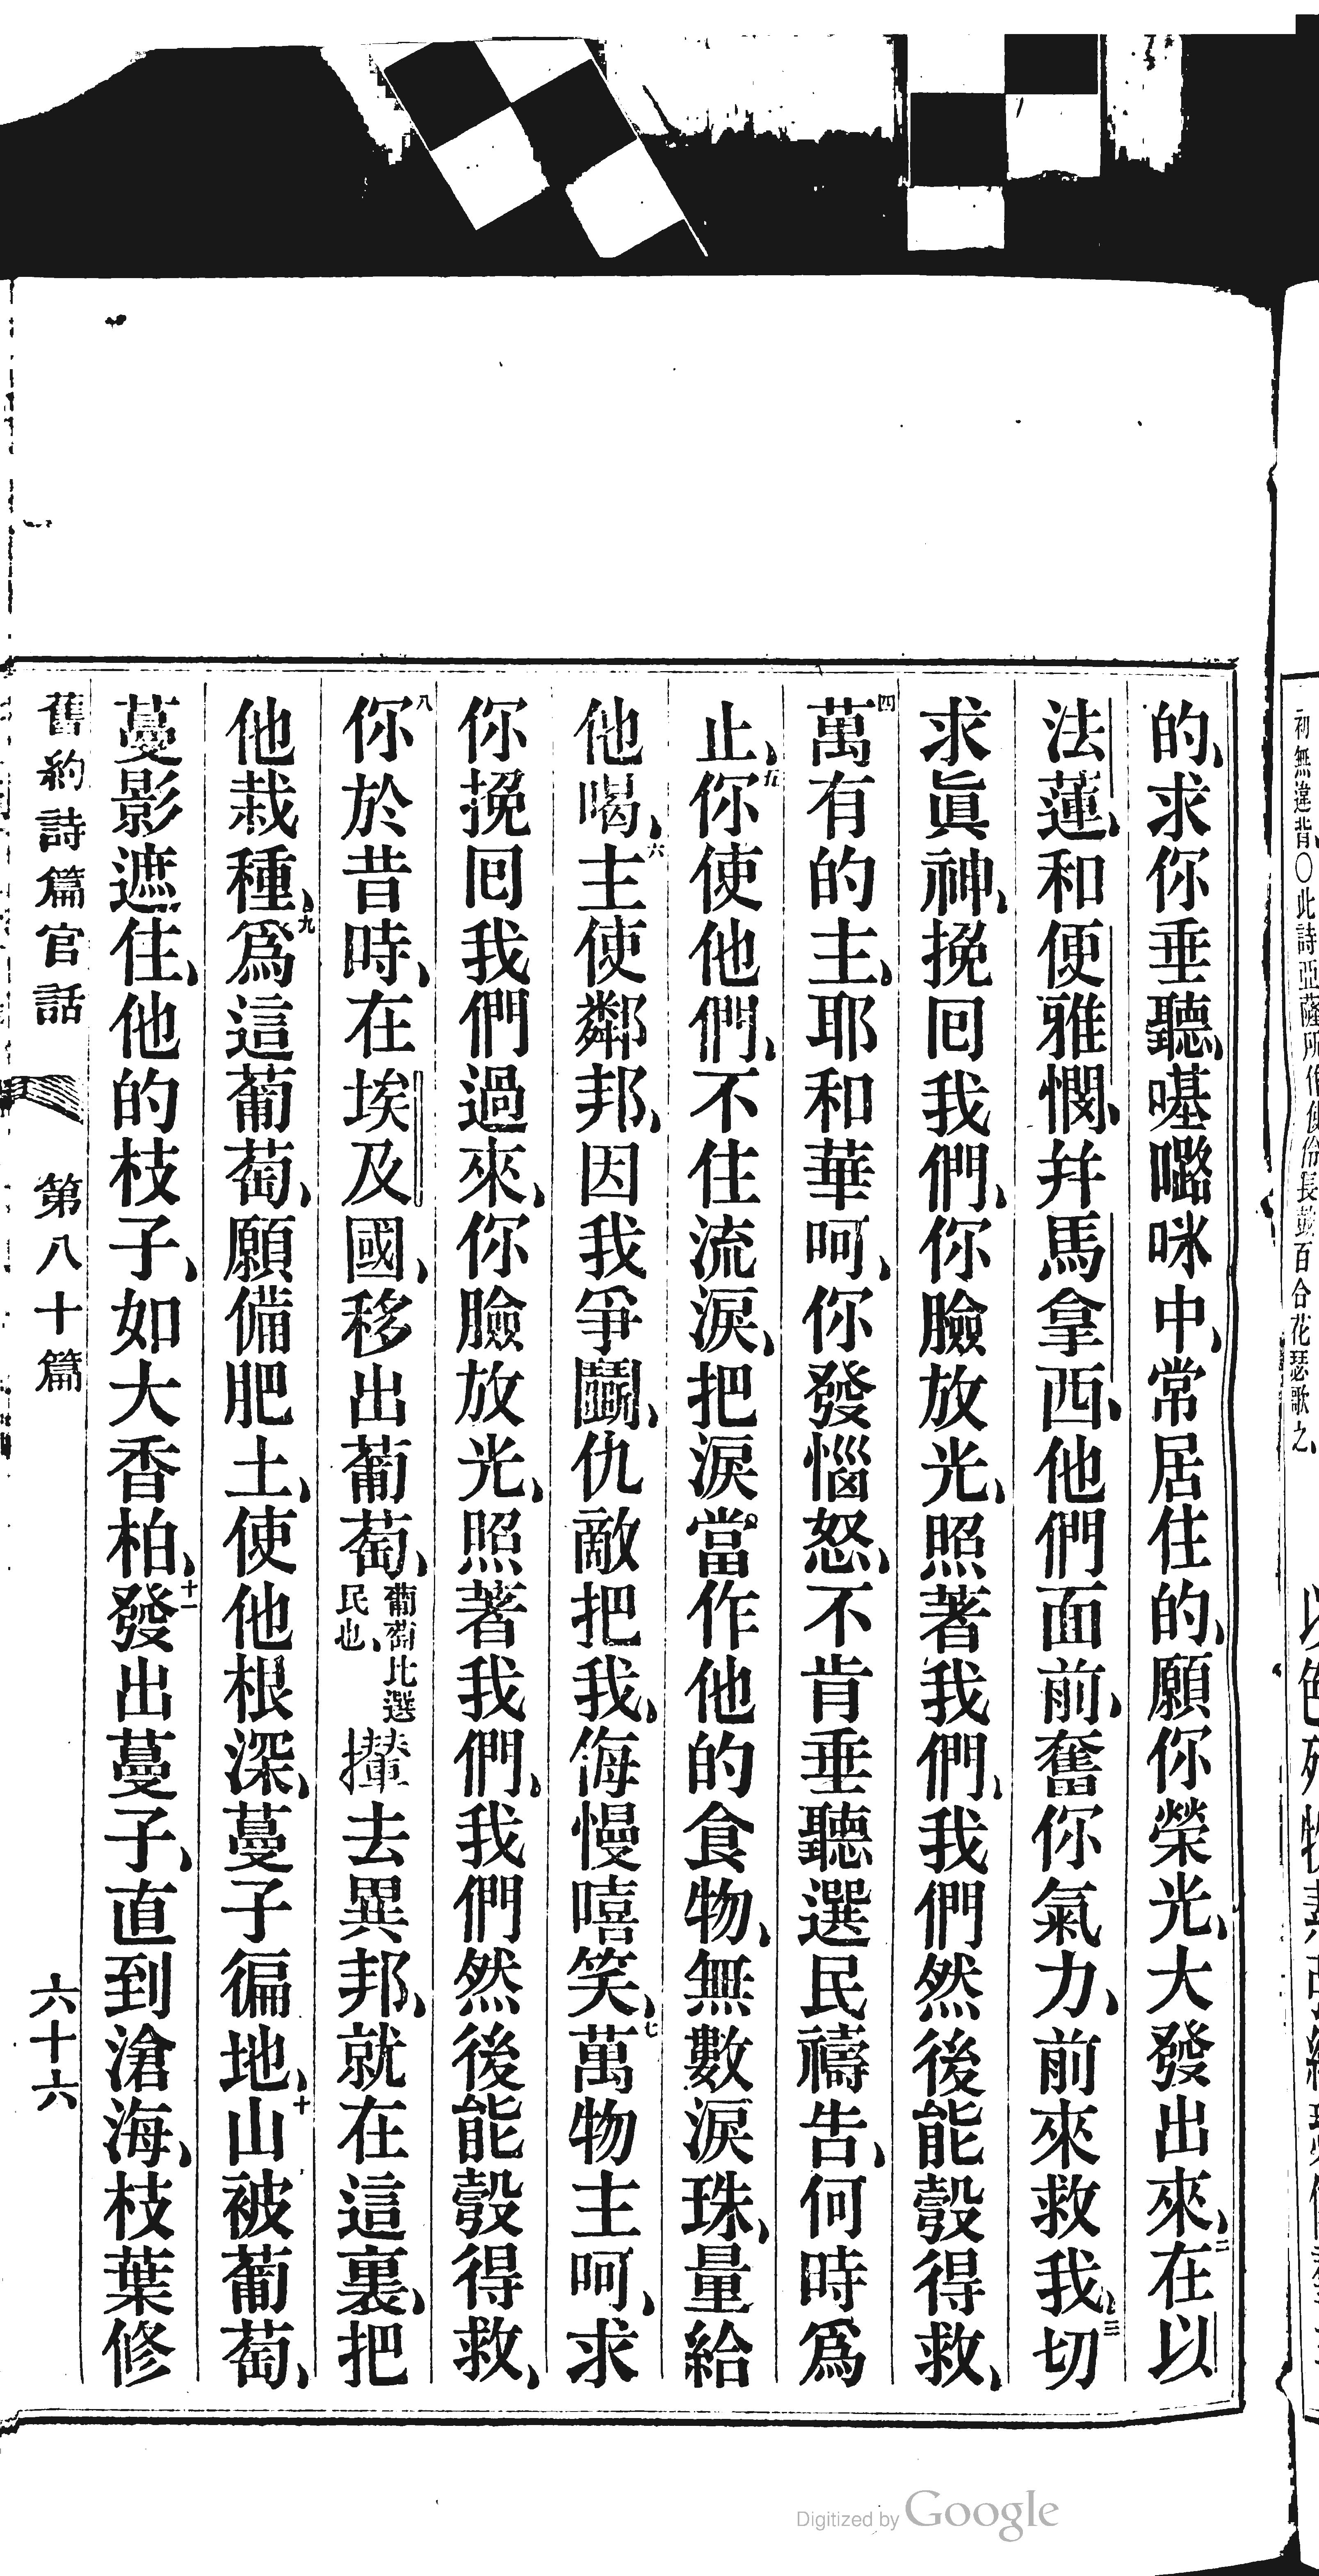 初無違背、○此詩亞薩所作使伶長鼓百合花瑟歌之、
的、求你垂聽、𠼻嚧咪中、常居住的、願你榮光、大發出來、二在以
法蓮、和便雅憫、并馬拿西、他們面前、奮你氣力、前來救我、三切
求眞神、挽回我們、你臉放光、照著我們、我們然後能彀得救、
四萬有的主、耶和華呵、你發惱怒、不肯垂聽選民禱告、何時爲
止、五你使他們、不住流淚、把淚當作他的食物、無數淚珠、量給
他喝、六主使鄰邦、因我爭鬭、仇敵把我、侮慢嘻笑、七萬物主呵、求
你挽回我們過來、你臉放光、照著我們、我們然後能彀得救、
八你於昔時、在埃及國、移出葡萄、葡萄比選民也、攆去異邦、就在這裏、把
他栽種、九爲這葡萄、願備肥土、使他根深、蔓子徧地、十山被葡萄、
蔓影遮住、他的枝子、如大香柏、十一發出蔓子、直到滄海、枝葉修
舊約詩篇官話 第八十篇 六十六
Digitized by Google